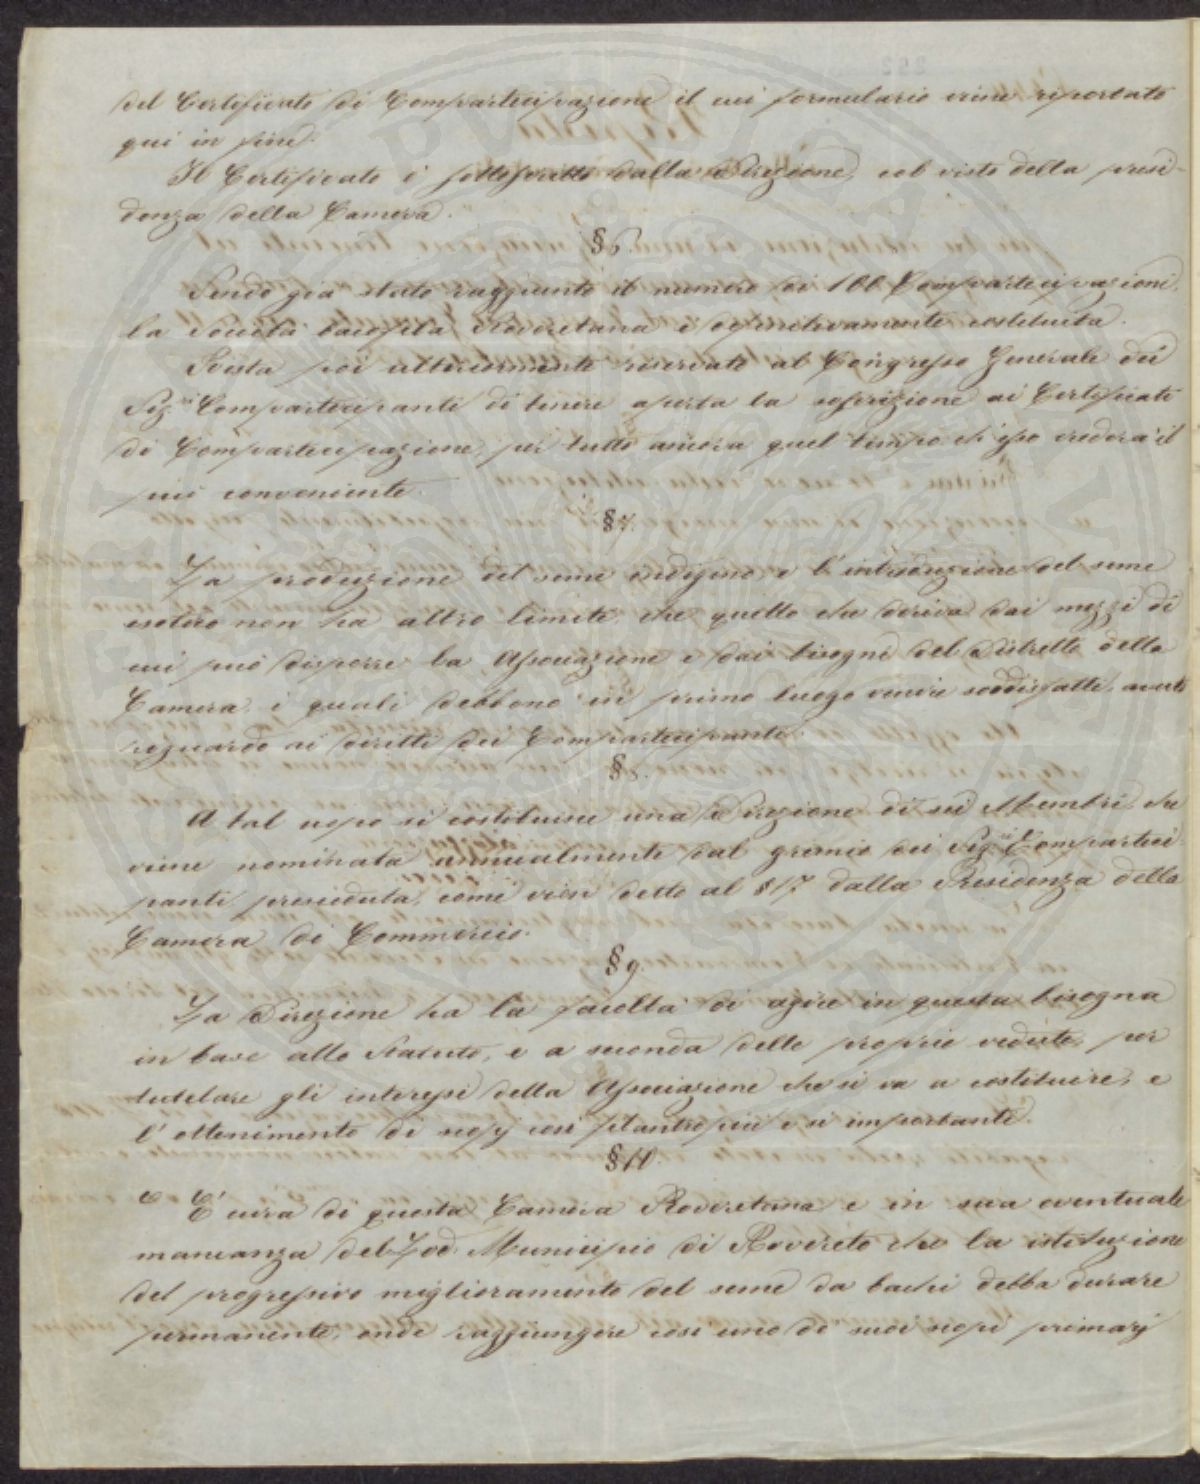 del Certificato di Compartecipazione il cui formulario viene riportato
qui in fine.
Il Certificato è sottoscritto dalla Direzione, col visto della presi-
denza della Camera.
§ 6.
Sendo già stato raggiunto il numero di 100 Compartecipazioni,
la Società bacofila Roveretana è definitivamente costituita.
Resta poi ulteriormente riservato al Congresso Generale dei
Sig.ri Compartecipanti di tenere aperta la soscrizione ai Certificati
di Compartecipazione, per tutto ancora quel tempo ch'esso crederà il
più conveniente.
§ 7.
La produzione del seme indigeno, e l'introduzione del seme
estero non ha altro limite, che quello che deriva dai mezzi di
cui può disporre la Associazione e dai bisogni del Distretto della
Camera, i quali debbono in primo luogo venire soddisfatti, avuto
riguardo ai diritti dei Compartecipanti.
§ 8.
A tal uopo si costituisce una Direzione di sei Membri, che
viene nominata annualmente dal gremio dei Sig.ri Comparteci-
panti, presieduta, come vien detto al § 17 dalla Presidenza della
Camera di Commercio.
§ 9.
La Direzione ha la facoltà di agire in questa bisogna
in base allo Statuto, e a seconda delle proprie vedute, per
tutelare gli interessi della Associazione che si va a costituire, e
l'ottenimento di scopj così filantropici e sì importanti.
§ 10.
È cura di questa Camera Roveretana e in sua eventuale
mancanza del Lod. Municipio di Rovereto che la istituzione
del progressivo miglioramento del seme da bachi debba durare
permanente, onde raggiungere così uno de' suoi scopi primarj